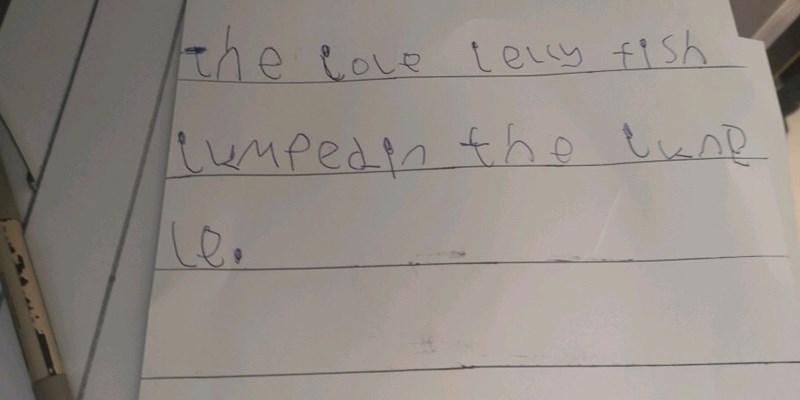 the jole jelly fish
jumped in the jung
le.